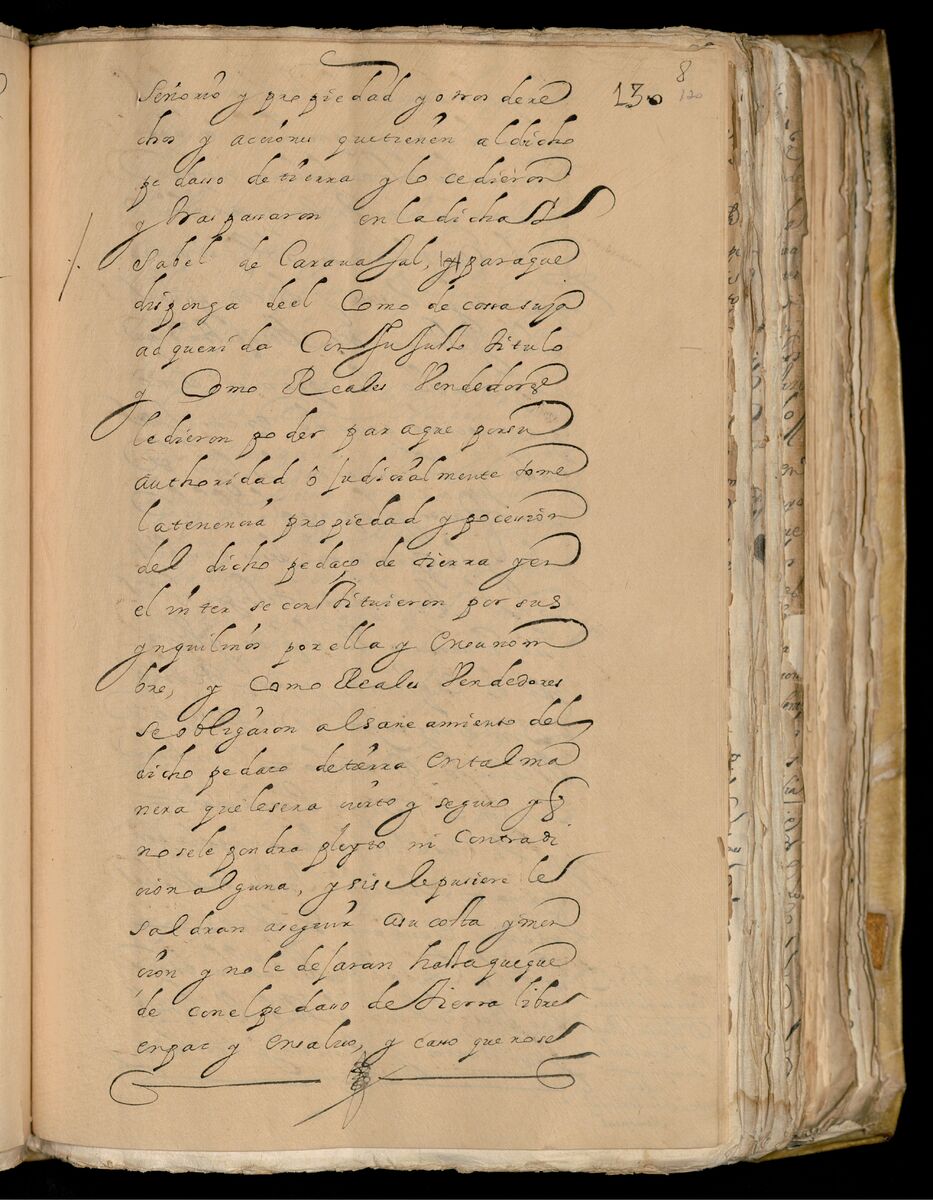 8
130
120
Señorio y propiedad y otros dere
chos y acciones que tienen al dicho
pedasso de tierra y lo cedieron
y traspassaron en la dicha
Esabel de Carauaſſal, para que
disponga de el Como de cossa suja
adquerida Con Su Justto titulo
y Como Reales Vendedores
le dieron poder para que por su
authoridad ô judicialmente tome
la tenencia propiedad y pocession
del dicho pedaço de tierra y en
el inter se constituieron por sus
ynquilinos por ella y en su nom
bre, y Como Reales Vendedores
se obligaron al saneamiento del
dicho pedaço de tierra en tal ma
nera que le sera cierto y seguro y q̃
no se le pondra pleyto ni Contradi
cion alguna, y si se le pusiere le
saldran a seguir a su costa y men
cion y no le dejaran hasta que que
de con el pedasso de tierra libre
en paz y en saluo, y casso que no se